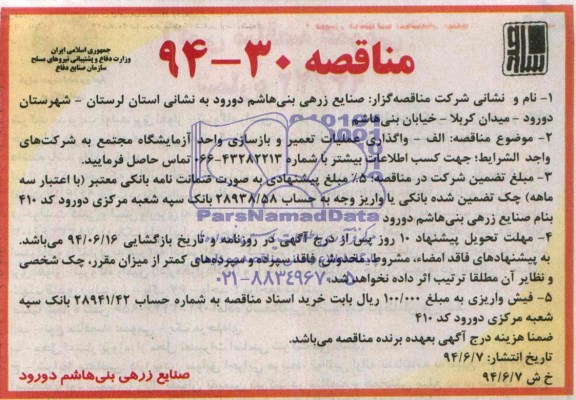 جمهوری اسلامی ایران
وزارت دفاع و پشتیبانی نیروهای مسلح
سازمان صنایع دفاع
مناقصه ۳۰–۹۴
۱- نام و نشانی شرکت مناقصه‌گزار: صنایع زرهی بنی‌هاشم دورود به نشانی استان لرستان – شهرستان
دورود – میدان کربلا – خیابان بنی‌هاشم
۲- موضوع مناقصه: الف – واگذاری عملیات تعمیر و بازسازی واحد آزمایشگاه مجتمع به شرکت‌های
واجد الشرایط: جهت کسب اطلاعات بیشتر با شماره ۴۳۲۸۲۲۱۳-۰۶۶ تماس حاصل فرمایید.
۳- مبلغ تضمین شرکت در مناقصه: ۵٪ مبلغ پیشنهادی به صورت ضمانت نامه بانکی معتبر (با اعتبار سه
ماهه) چک تضمین شده بانکی یا واریز وجه به حساب ۲۸۹۳۸/۵۸ بانک سپه شعبه مرکزی دورود کد ۴۱۰
بنام صنایع زرهی بنی‌هاشم دورود
ParsNamadData
۴- مهلت تحویل پیشنهاد ۱۰ روز پس از درج آگهی در روزنامه و تاریخ بازگشایی ۹۴/۰۶/۱۶ می‌باشد.
به پیشنهادهای فاقد امضاء، مشروط، مخدوش، فاقد سپرده و سپرده‌های کمتر از میزان مقرر، چک شخصی
و نظایر آن مطلقا ترتیب اثر داده نخواهد شد.
۰۲۱-۸۸۳۴۹۶۷۰-۵
۵- فیش واریزی به مبلغ ۱۰۰/۰۰۰ ریال بابت خرید اسناد مناقصه به شماره حساب ۲۸۹۴۱/۴۲ بانک سپه
شعبه مرکزی دورود کد ۴۱۰
ضمنا هزینه درج آگهی بعهده برنده مناقصه می‌باشد.
تاریخ انتشار: ۹۴/۶/۷
خ ش ۹۴/۶/۷
صنایع زرهی بنی‌هاشم دورود